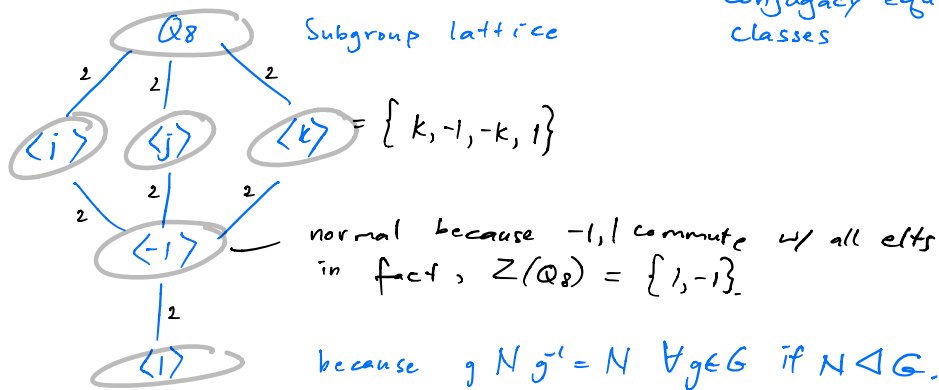 conjugacy
Q8 Subgroup lattice classes
2 2 2
<i> <j> <k> = { k, -1, -k, 1}
2 2 2
<-1> normal because -1, 1 commute w/ all elts
in fact, Z(Q8) = {1, -1}.
2
<1> because g N g⁻¹ = N ∀g∈G if N ◁ G.